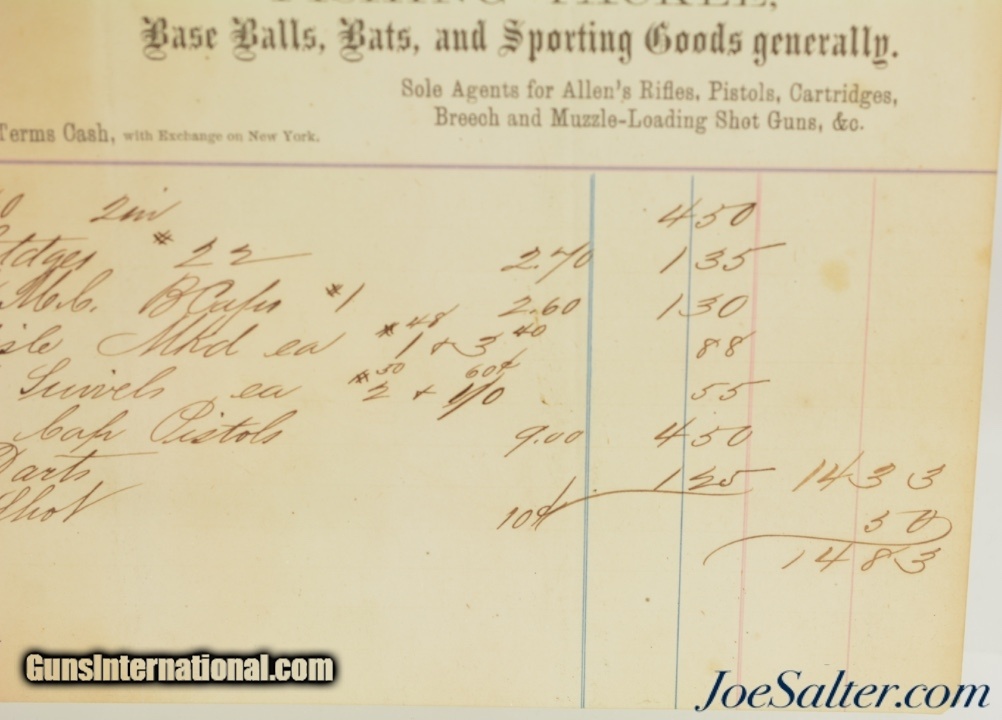 Base Balls, Bats, and Sporting Goods generally.
Sole Agents for Allen's Rifles, Pistols, Cartridges,
Breech and Muzzle-Loading Shot Guns, &c.
Terms Cash, with Exchange on New York.
2in 450
# 22 2.70 135
B Caps #1 2.60 130
Mkd ea #48 1 + 3 40 88
Swivels ea #50 2 + 1/0 60¢ 55
Cap Pistols 9.00 450
Darts 125 1433
Shot 10¢ 50
1483
GunsInternational.com
JoeSalter.com